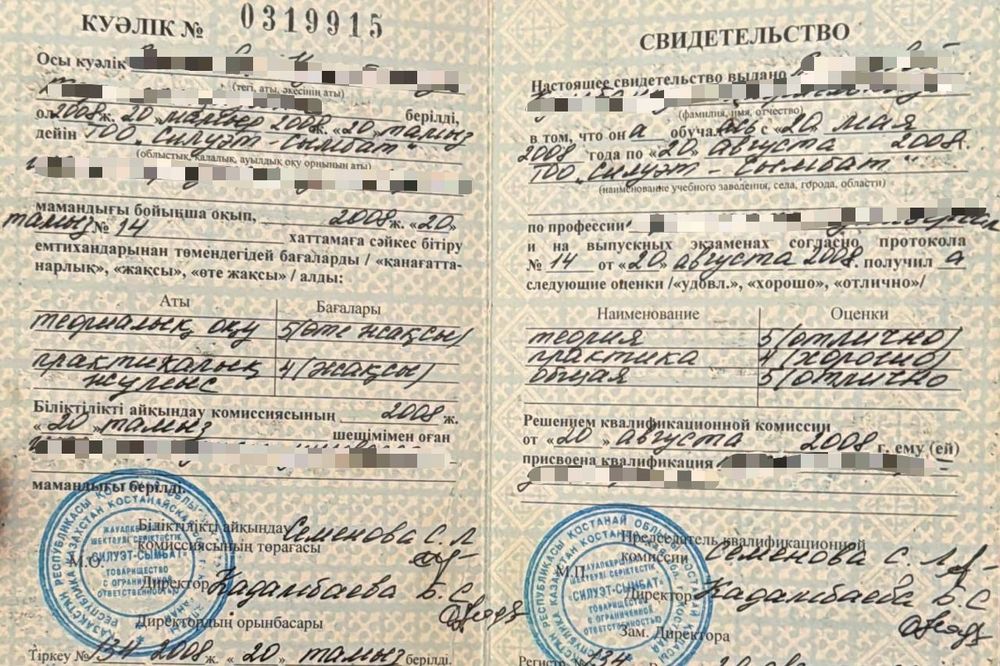 КУӘЛІК № 0319915
Осы куәлік
(тегі, аты, әкесінің аты)
берілді,
ол 2008 ж. «20» мамыр 2008 ж. «20» тамыз
дейін ТОО "Силуэт-Сымбат"
(облыстық, қалалық, ауылдық оқу орнының аты)
мамандығы бойынша оқып, 2008 ж. «20»
тамыз № 14 хаттамаға сәйкес бітіру
емтихандарынан төмендегідей бағаларды / «қанағатта-
нарлық», «жақсы», «өте жақсы» / алды:
Аты Бағалары
теориялық оқу 5 (өте жақсы)
практикалық 4 (жақсы)
жұмыс
Біліктілікті айқындау комиссиясының 2008 ж.
«20» тамыз шешімімен оған
мамандығы берілді.
Біліктілікті айқындау Семенова С. Л
комиссиясының төрағасы
М.О.
Директор Кадамбаева Б. С
Директордың орынбасары
Тіркеу № 134 2008 ж. «20» тамыз берілді.
ҚАЗАҚСТАН РЕСПУБЛИКАСЫ
ЖАУАПКЕРШІЛІГІ
ШЕКТЕУЛІ СЕРІКТЕСТІК
"СИЛУЭТ-СЫМБАТ"
ТОВАРИЩЕСТВО
С ОГРАНИЧЕННОЙ
ОТВЕТСТВЕННОСТЬЮ
СВИДЕТЕЛЬСТВО
Настоящее свидетельство выдано
(фамилия, имя, отчество)
в том, что он а обучалась с «20» мая
2008 года по «20» августа 2008 г.
ТОО "Силуэт-Сымбат"
(наименование учебного заведения, села, города, области)
по профессии
и на выпускных экзаменах согласно протокола
№ 14 от «20» августа 2008 г. получил а
следующие оценки /«удовл.», «хорошо», «отлично»/
Наименование Оценки
теория 5 (отлично)
практика 4 (хорошо)
общая 5 (отлично
Решением квалификационной комиссии
от «20» августа 2008 г. ему (ей)
присвоена квалификация
Председатель квалификационной
комиссии Семенова С. Л
М.П.
Директор Кадамбаева Б. С
Зам. Директора
Регистр. № 134
КОСТАНАЙ ОБЛЫСЫ
ЖАУАПКЕРШІЛІГІ
ШЕКТЕУЛІ СЕРІКТЕСТІК
"СИЛУЭТ-СЫМБАТ"
ТОВАРИЩЕСТВО
С ОГРАНИЧЕННОЙ
ОТВЕТСТВЕННОСТЬЮ